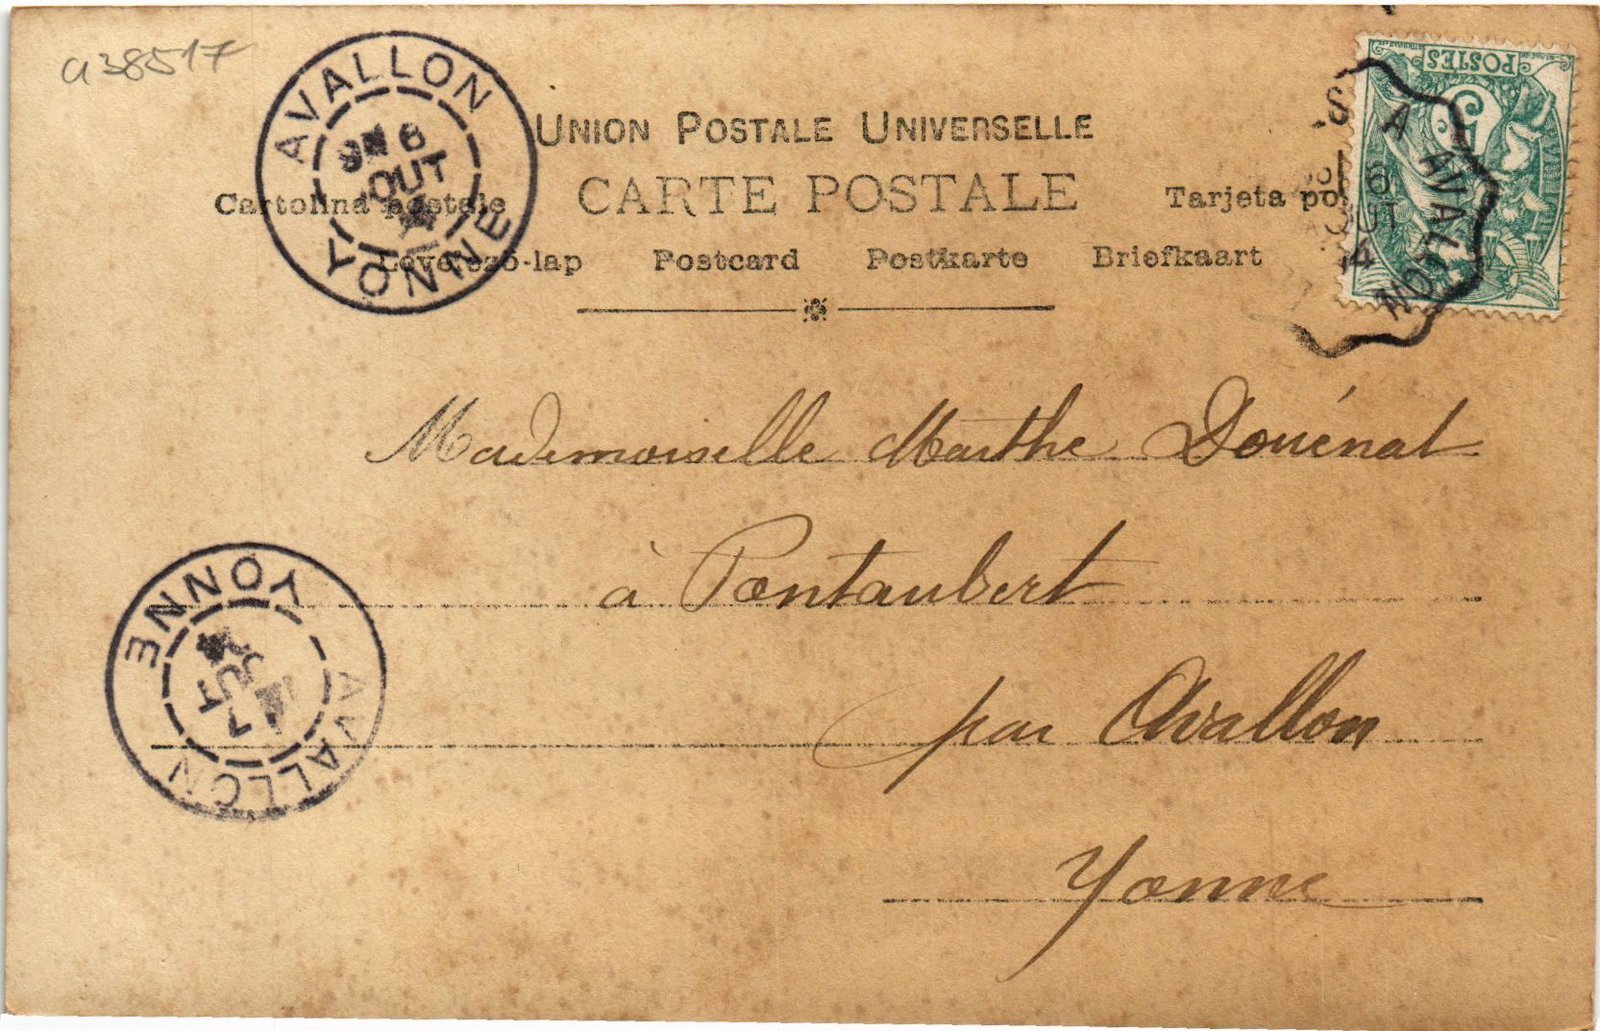 a38517
AVALLON
6
OUT
YONNE
UNION POSTALE UNIVERSELLE
CARTE POSTALE
Cartolina postale
Tarjeta pos
Levelező-lap Postcard Postkarte Briefkaart
POSTES
5
S A AVALLON
6
OUT
04
Mademoiselle Marthe Douénat
à Pontaubert
par Avallon
Yonne
AVALLON
7
OUT
YONNE